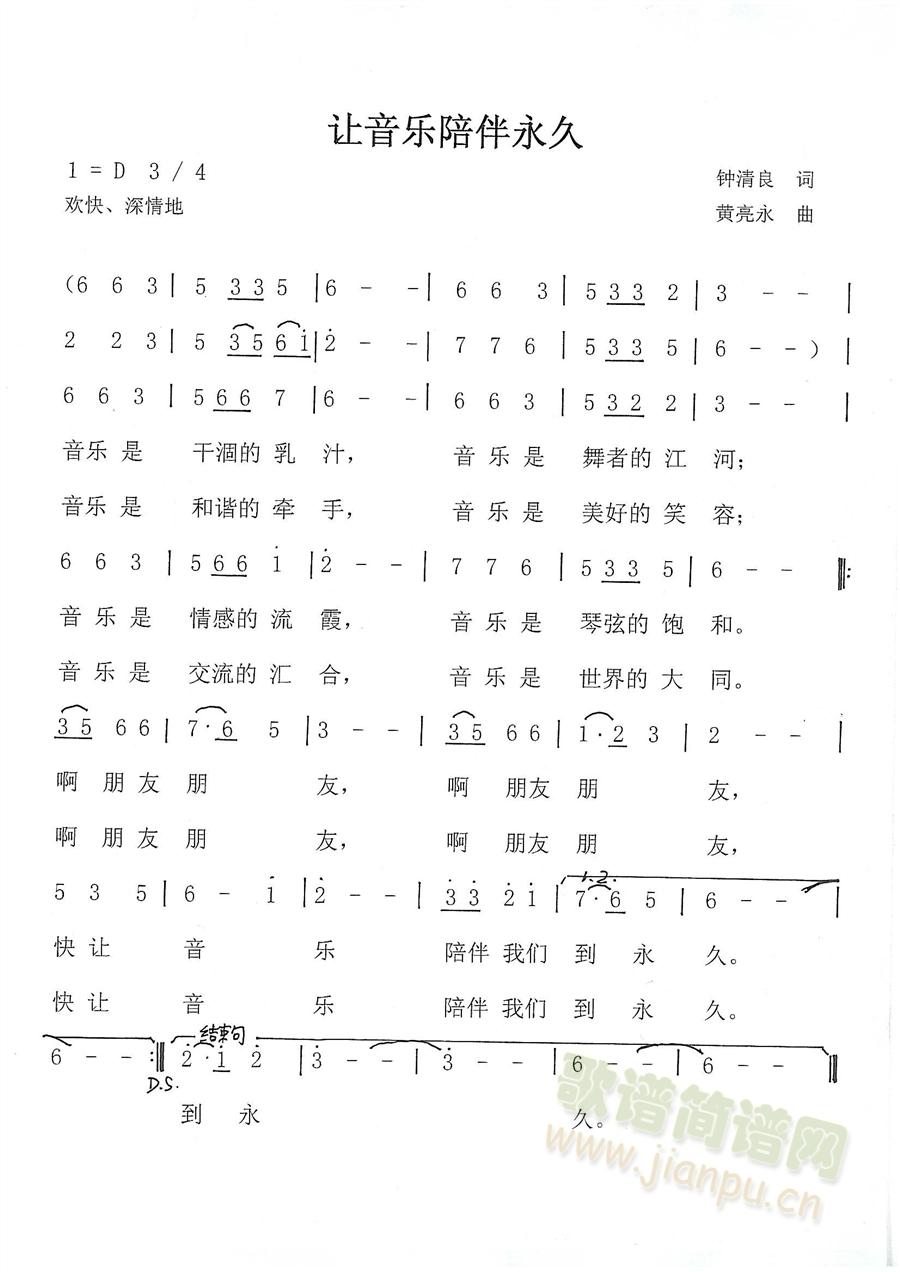 让音乐陪伴永久
1 = D 3 / 4
钟清良 词
欢快、深情地
黄亮永 曲
(6 6 3 | 5 3 3 5 | 6 - - | 6 6 3 | 5 3 3 2 | 3 - - |
2 2 3 | 5 3 5 6 i | 2̇ - - | 7 7 6 | 5 3 3 5 | 6 - - ) |
6 6 3 | 5 6 6 7 | 6 - - | 6 6 3 | 5 3 2 2 | 3 - - |
音乐是 干涸的乳汁， 音乐是 舞者的江河；
音乐是 和谐的牵手， 音乐是 美好的笑容；
6 6 3 | 5 6 6 i | 2̇ - - | 7 7 6 | 5 3 3 5 | 6 - - ‖:
音乐是 情感的流霞， 音乐是 琴弦的饱和。
音乐是 交流的汇合， 音乐是 世界的大同。
3 5 6 6 | 7 · 6 5 | 3 - - | 3 5 6 6 | 1 · 2 3 | 2 - - |
啊 朋友朋 友， 啊 朋友朋 友，
啊 朋友朋 友， 啊 朋友朋 友，
1.2.
5 3 5 | 6 - i | 2̇ - - | 3̇ 3̇ 2̇ i | 7 · 6 5 | 6 - - |
快让 音 乐 陪伴我们到永 久。
快让 音 乐 陪伴我们到永 久。
结束句
6 - - :‖ 2̇ · i 2̇ | 3̇ - - | 3̇ - - | 6 - - | 6 - - ‖
D.S.
到 永 久。
歌谱简谱网
www.jianpu.cn